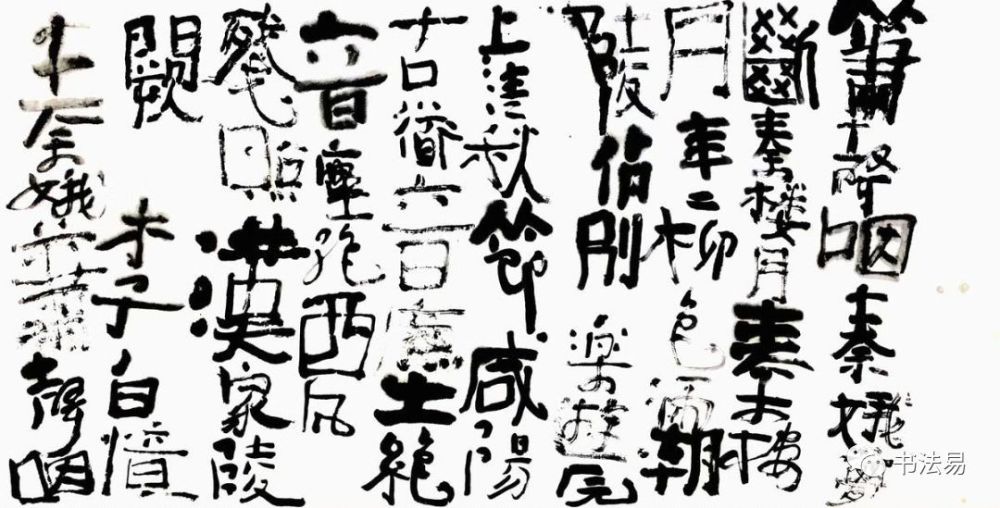 簫聲咽秦娥夢
斷秦樓月秦樓
月年二柳色灞
陵傷別樂遊原
上清秋節咸陽
古道音塵絕
音塵絕西風
殘照漢家陵
闕李白憶
秦娥簫聲咽
书法易